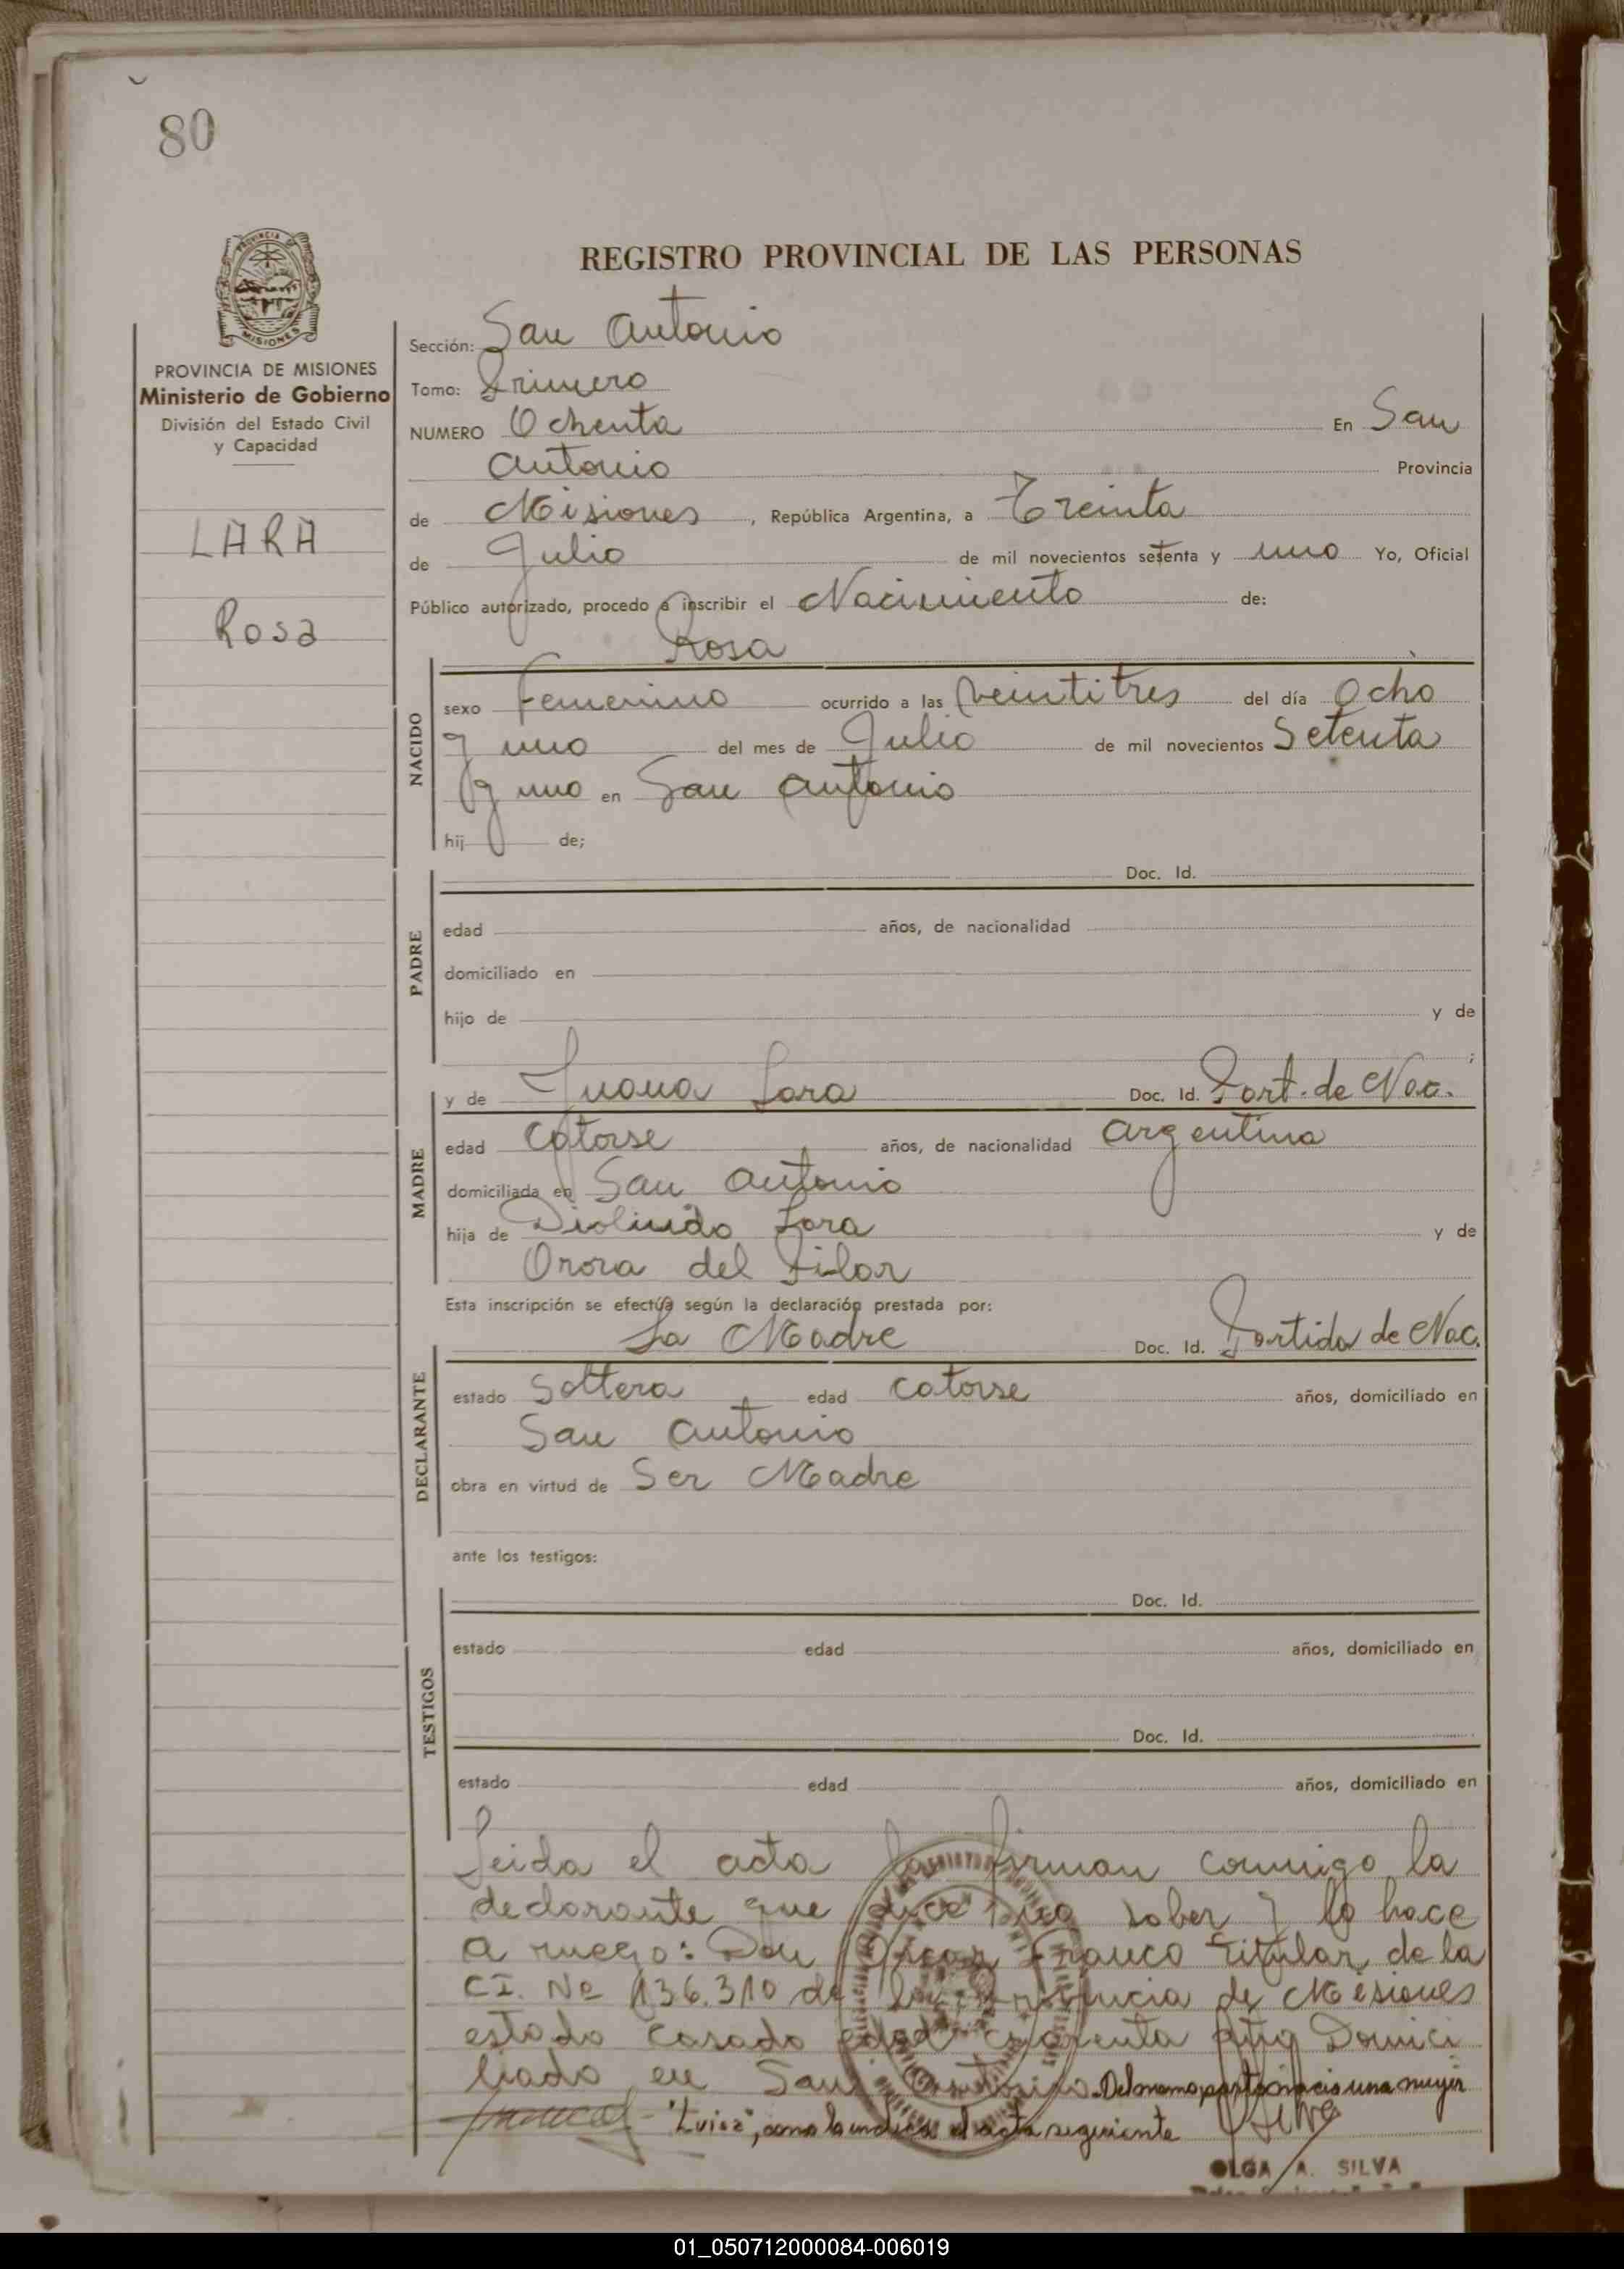 80
REGISTRO PROVINCIAL DE LAS PERSONAS
PROVINCIA DE MISIONES
Ministerio de Gobierno
División del Estado Civil
y Capacidad
LARA
Rosa
Sección: San Antonio
Tomo: Primero
NUMERO Ochenta En San
Antonio Provincia
de Misiones, República Argentina, a Treinta
de Julio de mil novecientos setenta y uno Yo, Oficial
Público autorizado, procedo a inscribir el Nacimiento de:
Rosa
NACIDO
sexo Femenino ocurrido a las veintitres del día Ocho
y uno del mes de Julio de mil novecientos Setenta
y uno en San Antonio
hij de;
PADRE
Doc. Id.
edad años, de nacionalidad
domiciliado en
hijo de y de
;
MADRE
y de Juana Lara Doc. Id. Part. de Nac.
edad Catorse años, de nacionalidad Argentina
domiciliada en San Antonio
hija de Diolindo Lara y de
Orora del Pilar
Esta inscripción se efectúa según la declaración prestada por:
La Madre Doc. Id. Partida de Nac.
DECLARANTE
estado Soltera edad Catorse años, domiciliado en
San Antonio
obra en virtud de Ser Madre
ante los testigos:
TESTIGOS
Doc. Id.
estado edad años, domiciliado en
Doc. Id.
estado edad años, domiciliado en
Leida el acta la firman conmigo la
declarante que dice no saber y lo hace
a ruego: Don Oscar Franco titular de la
CI. Nº 136.310 de la Provincia de Misiones
estado Casado edad cuarenta años Domici
liado en San Antonio. Del mismo parto nacio una mujer
"Luisa", como lo indica el acta seguiente
OLGA A. SILVA
01_050712000084-006019